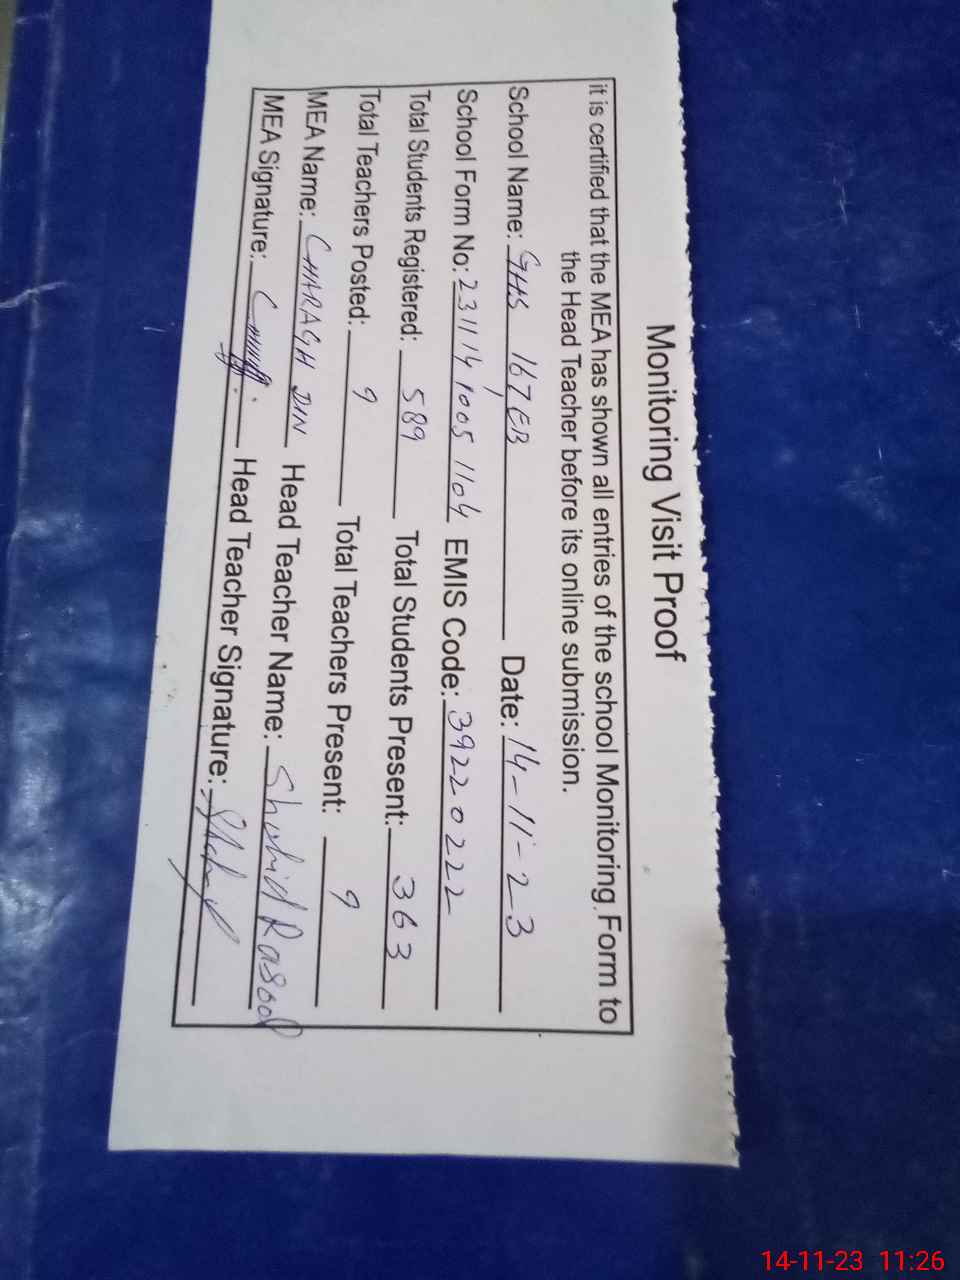 Monitoring Visit Proof
it is certified that the MEA has shown all entries of the school Monitoring Form to
the Head Teacher before its online submission.
School Name: GHS 167 EB Date: 14-11-23
School Form No: 231114 1005 1104 EMIS Code: 39220222
Total Students Registered: 589 Total Students Present: 363
Total Teachers Posted: 9 Total Teachers Present: 9
MEA Name: CHARAGH DIN Head Teacher Name: Shahid Rasool
MEA Signature: Head Teacher Signature:
14-11-23 11:26